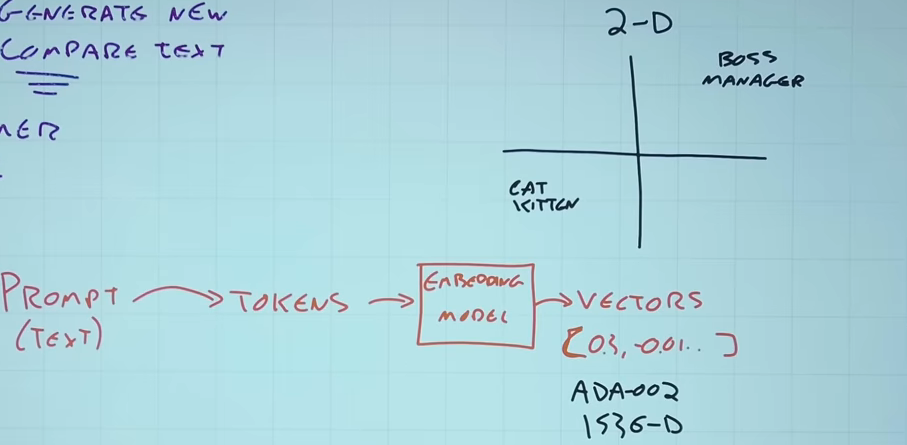 GENERATE NEW
COMPARE TEXT
2-D
BOSS
MANAGER
CAT
KITTEN
PROMPT
(TEXT)
TOKENS
EMBEDDING
MODEL
VECTORS
[0.3, -0.01.. ]
ADA-002
1536-D